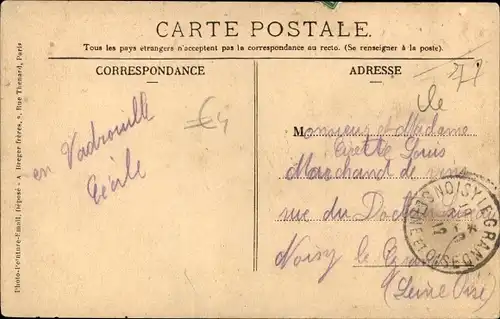 CARTE POSTALE.
Tous les pays étrangers n'acceptent pas la correspondance au recto. (Se renseigner à la poste).
CORRESPONDANCE
ADRESSE
Photo-Peinture-Email, Déposé - A. Breger frères, 9, Rue Thenard, Paris
en Vadrouille
Cécile
€4
Monsieur et Madame
Louis
Marchand de vins
rue du Docteur
Noisy le Grand
(Seine Oise)
NOISY LE GRAND
SEINE ET OISE